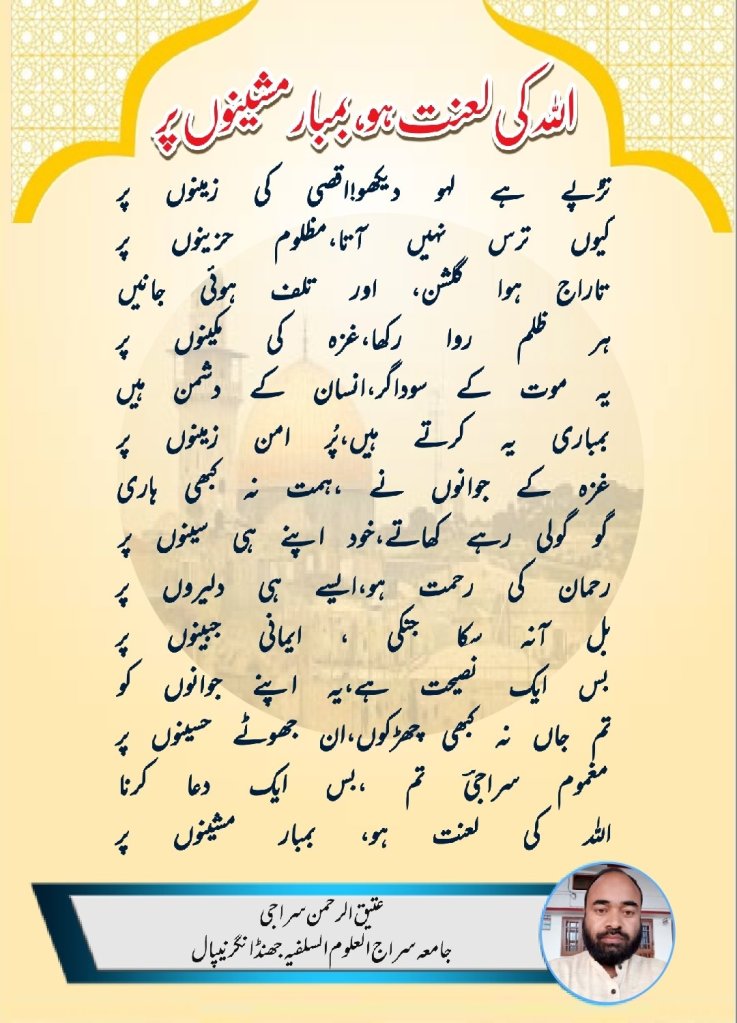 اللہ کی لعنت ہو، بمبار مشینوں پر
تڑپے ہے لہو دیکھو!اقصیٰ کی زمینوں پر
کیوں ترس نہیں آتا،مظلوم حزینوں پر
تاراج ہوا گلشن، اور تلف ہوئی جانیں
ہر ظلم روا رکھا،غزہ کی مکینوں پر
یہ موت کے سوداگر،انسان کے دشمن ہیں
بمباری یہ کرتے ہیں،پُر امن زمینوں پر
غزہ کے جوانوں نے ،ہمت نہ کبھی ہاری
گو گولی رہے کھاتے،خود اپنے ہی سینوں پر
رحمان کی رحمت ہو،ایسے ہی دلیروں پر
بل آنہ سکا جتکی ، ایمانی جبینوں پر
بس ایک نصیحت ہے،یہ اپنے جوانوں کو
تم جاں نہ کبھی چھڑکوں،ان جھوٹے حسینوں پر
مغموم سراجیؔ تم ،بس ایک دعا کرنا
اللہ کی لعنت ہو، بمبار مشینوں پر
عتیق الرحمن سراجی
جامعہ سراج العلوم السلفیہ جھنڈانگر نیپال